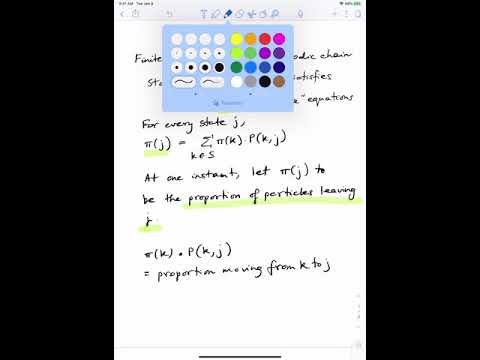 9:41 AM Tue Jan 5
Finite
odic chain
sta
satisfies
equations
For every state j,
π(j) = Σ π(k) · P(k,j)
k ∈ S
At one instant, let π(j) to
be the proportion of particles leaving
j.
π(k) • P(k,j)
= proportion moving from k to j